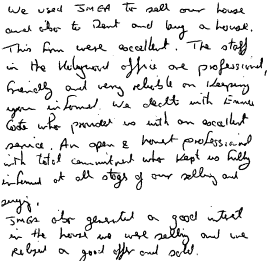 We used JMEA to sell our house
and also to rent and buy a house.
This firm were excellent. The staff
in the Holywood office are professional,
friendly and very reliable on keeping
you informed. We dealt with Emma
who provided us with an excellent
service. An open & honest professional
with total commitment who kept us fully
informed at all stages of our selling and
buying.
JMEA also generated a good interest
in the house we were selling and we
a good offer and sold.